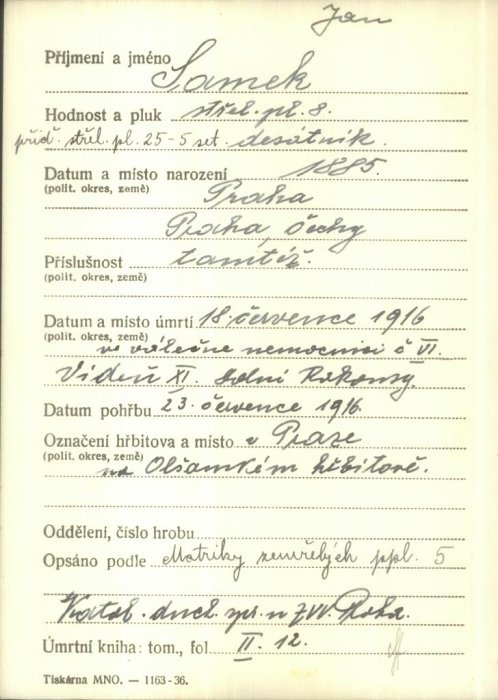 Jan
Příjmení a jméno Samek
Hodnost a pluk střel. pl. 8.
přiď. střel. pl. 25-5 set. desátník.
Datum a místo narození 1885.
(polit. okres, země) Praha
Praha, Čechy
Příslušnost tamtéž.
(polit. okres, země)
Datum a místo úmrtí 18. července 1916
(polit. okres, země) ve válečné nemocnici č VI.
Vídeň XI. dolní Rakousy.
Datum pohřbu 23. července 1916.
Označení hřbitova a místo v Praze
(polit. okres, země) na Olšanském hřbitově.
Oddělení, číslo hrobu
Opsáno podle Matriky zemřelých ppl. 5
Katol. duch. spr. u ZVV Praha.
Úmrtní kniha: tom., fol II. 12.
Tiskárna MNO. — 1163-36.